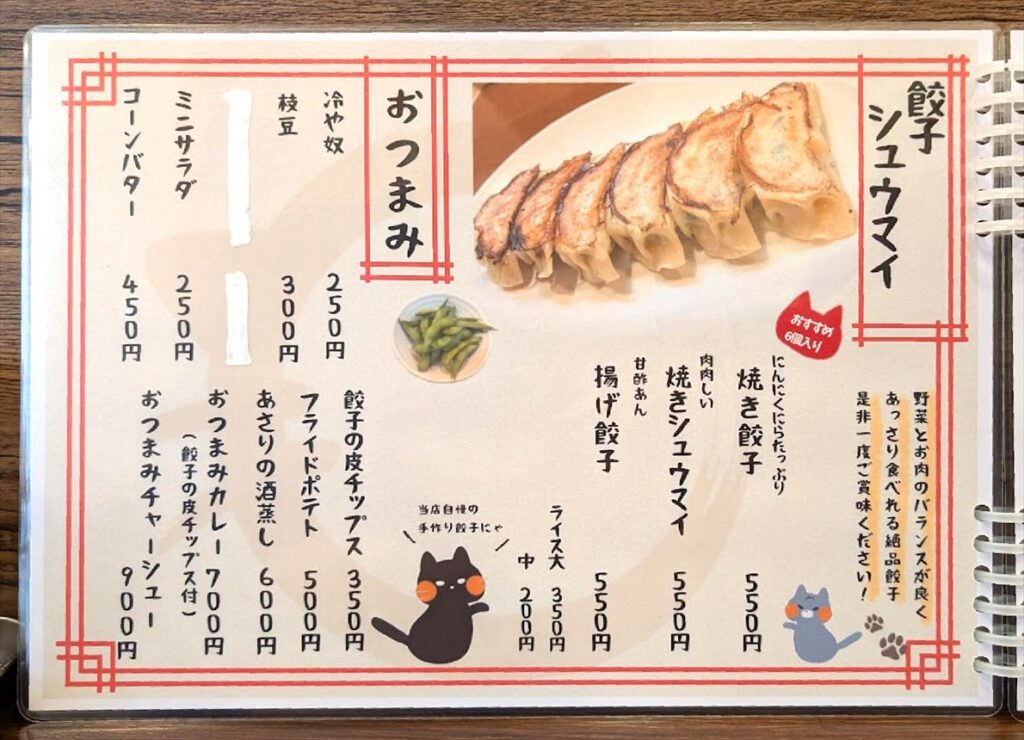 餃子
シュウマイ
野菜とお肉のバランスが良く
あっさり食べれる絶品餃子
是非一度ご賞味ください！
おすすめ
6個入り
にんにくにらたっぷり
焼き餃子 550円
肉肉しい
焼きシュウマイ 550円
甘酢あん
揚げ餃子 550円
ライス大 350円
中 200円
当店自慢の
手作り餃子にゃ
おつまみ
冷や奴 250円
枝豆 300円
ミニサラダ 250円
コーンバター 450円
餃子の皮チップス 350円
フライドポテト 500円
あさりの酒蒸し 600円
おつまみカレー 700円
(餃子の皮チップス付)
おつまみチャーシュー 900円